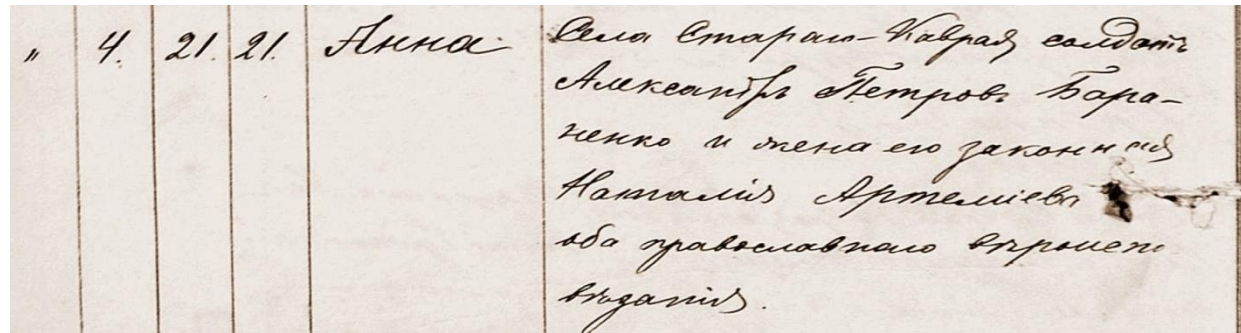 " 4. 21. 21. Анна Села Стараго-Коврая солдатъ
Александръ Петровъ Бара-
ненко и жена его законная
Наталія Артеміев
оба православнаго вѣроиспо
вѣданія.